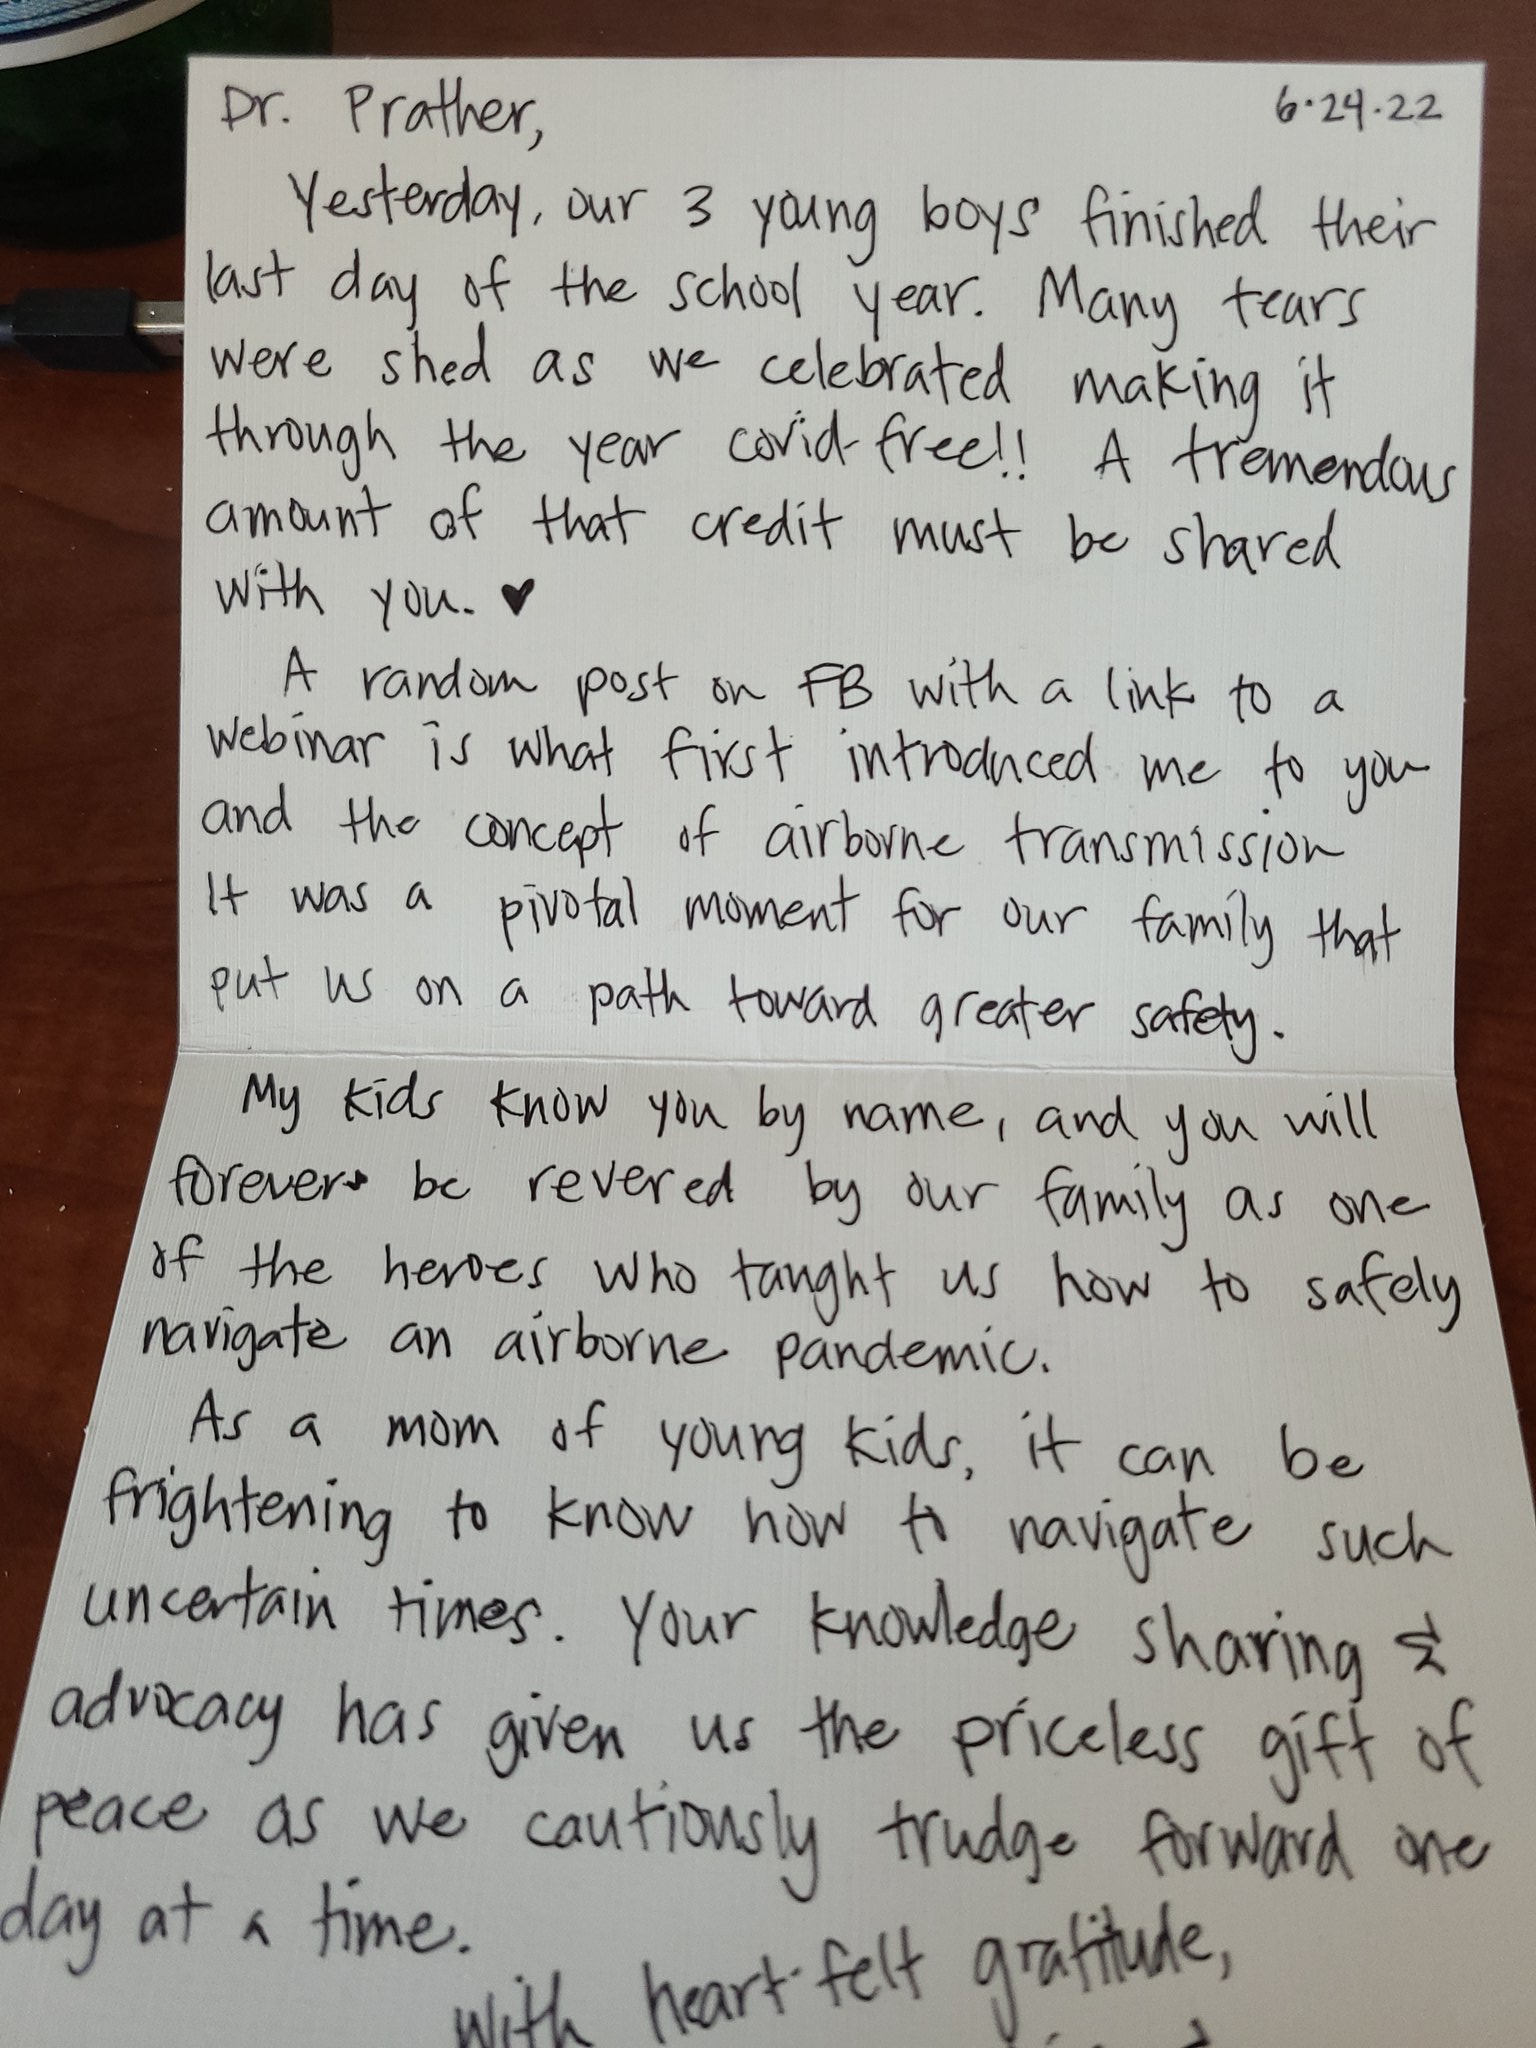 Dr. Prather,
6.24.22
Yesterday, our 3 young boys finished their
last day of the school year. Many tears
were shed as we celebrated making it
through the year covid-free!! A tremendous
amount of that credit must be shared
with you. ♥
A random post on FB with a link to a
webinar is what first introduced me to you
and the concept of airborne transmission
It was a pivotal moment for our family that
put us on a path toward greater safety.
My kids know you by name, and you will
forever be revered by our family as one
of the heroes who taught us how to safely
navigate an airborne pandemic.
As a mom of young kids, it can be
frightening to know how to navigate such
uncertain times. Your knowledge sharing &
advocacy has given us the priceless gift of
peace as we cautiously trudge forward one
day at a time.
With heart-felt gratitude,